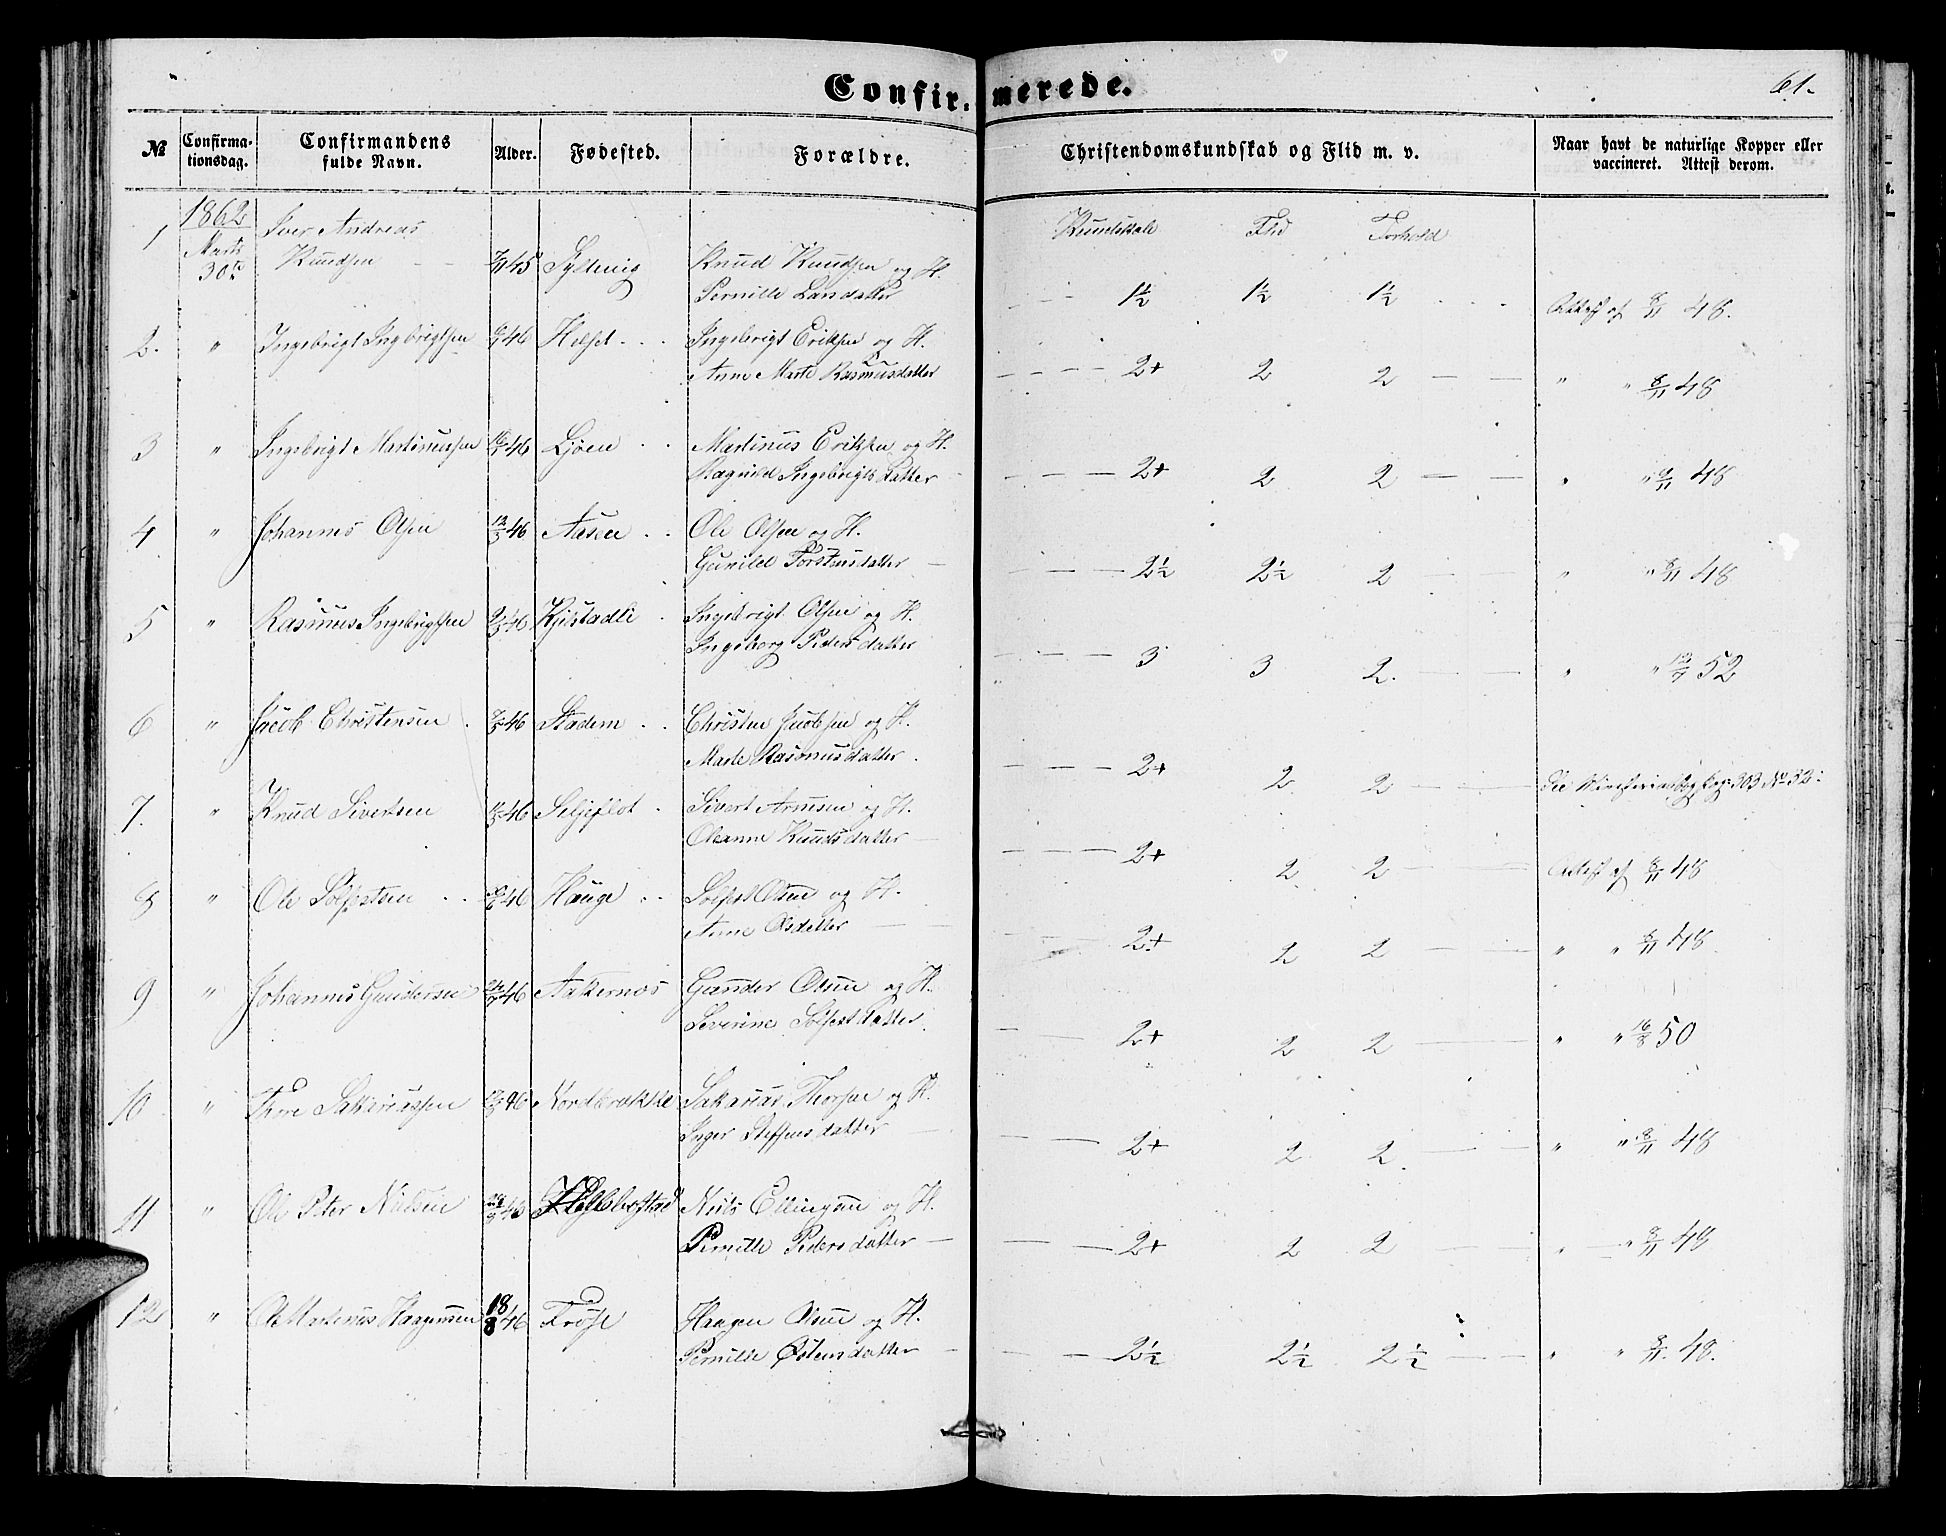 Confirmerede.
61.
№
Confirma-
tionsdag.
Confirmandens
fulde Navn.
Alder.
Fødested.
Forældre.
Christendomskundskab og Flid m. v.
Naar havt de naturlige Kopper eller
vaccineret. Attest derom.
Kundskab Flid Forhold
1 1862 Iver Andreas
Marts 30te Knudsen 45 Syltevig Knud Knudsen og H.
Pernille Larsdatter
1½ 1½ 1½ Attest af 8/11 48.
2. " Ingebrigt Ingebrigtsen 46 Helset Ingebrigt Eriksen og H.
Anne Marte Rasmusdatter
2+ 2 2 " " 8/11 48
3 " Ingebrigt Martinussen 46 Ljøen Martinus Eriksen og H.
Ragnild Ingebrigtsdatter
2+ 2 2 " " 8/11 48
4 " Johannes Olsen 12/3 46 Aasen Ole Olsen og H.
Gunild Torstensdatter
2½ 2½ 2 " " 8/11 48
5 " Rasmus Ingebrigtsen 46 Kjelstadli Ingebrigt Olsen og H.
Ingeborg Pedersdatter
3 3 2. " " 13/7 52
6 " Jacob Christensen 46 Stadem Christen Jacobsen og H.
Marte Rasmusdatter.
2+ 2 2 See Ministerialbog Pag: 303 No 52.
7. " Knud Sivertsen 46 Seljeflot Sivert Arnesen og H.
Oleanne Knudsdatter
2+ 2 2 Attest af 8/11 48
8 " Ole Solfestsen 46 Hauge Solfest Olsen og H.
Anne Olsdatter
2+ 2 2 " " 8/11 48
9 " Johannes Gundersen 46 Aakernæs Gunder Olsen og H.
Severine Solfestdatter
2+ 2 2 " " 16/8 50
10 " Thore Sakariassen 46 Nordbrække Sakarias Thorsen og H.
Inger Steffensdatter
2+ 2 2. " " 8/11 48
11 " Ole Peter Nielsen 46 Niels Ellingsen og H.
Pernille Pedersdatter
2+ 2 2 " " 8/11 48
12 " Ole Martinus Haagensen 18/8 46 Frøse Haagen Olsen og H.
Pernille Østensdatter
2½ 2½ 2½ " " 8/11 48.